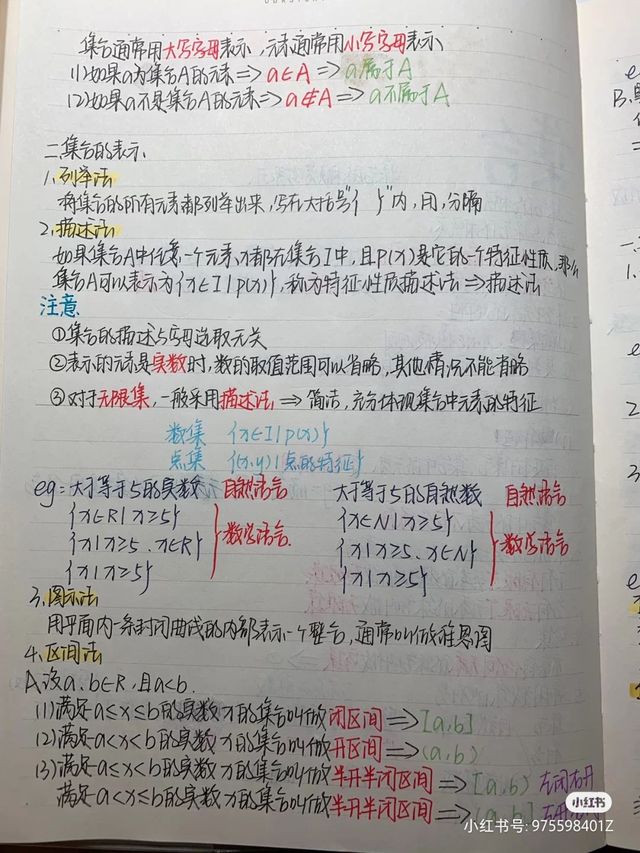 集合通常用大写字母表示,元素通常用小写字母表示
(1)如果a为集合A的元素⇒a∈A⇒a属于A
(2)如果a不是集合A的元素⇒a∉A⇒a不属于A
二集合的表示
1.列举法
将集合的所有元素都列举出来,写在大括号"{ }"内,用,分隔
2.描述法
如果集合A中任意一个元素x都在集合I中,且P(x)是它的一个特征性质,那么
集合A可以表示为{x∈I|p(x)},称为特征性质描述法⇒描述法
注意
①集合的描述与字母选取无关
②表示的元素是实数时,数的取值范围可以省略,其他情况不能省略
③对于无限集,一般采用描述法⇒简洁,充分体现集合中元素的特征
数集 {x∈I|p(x)}
点集 {(x,y)|点的特征}
eg=大于等于5的实数 自然语言 大于等于5的自然数 自然语言
{x∈R|x≥5} {x∈N|x≥5}
{x|x≥5,x∈R} 数学语言 {x|x≥5,x∈N} 数学语言
{x|x≥5} {x|x≥5}
3.图示法
用平面内一条封闭曲线的内部表示一个整合,通常叫做维恩图
4.区间法
A.设a,b∈R,且a<b.
(1)满足a≤x≤b的实数x的集合叫做闭区间⇒[a,b]
(2)满足a<x<b的实数x的集合叫做开区间⇒(a,b)
(3)满足a≤x<b的实数x的集合叫做半开半闭区间⇒[a,b) 左闭右开
满足a<x≤b的实数x的集合叫做半开半闭区间⇒(a,b]
小红书
小红书号: 975598401Z